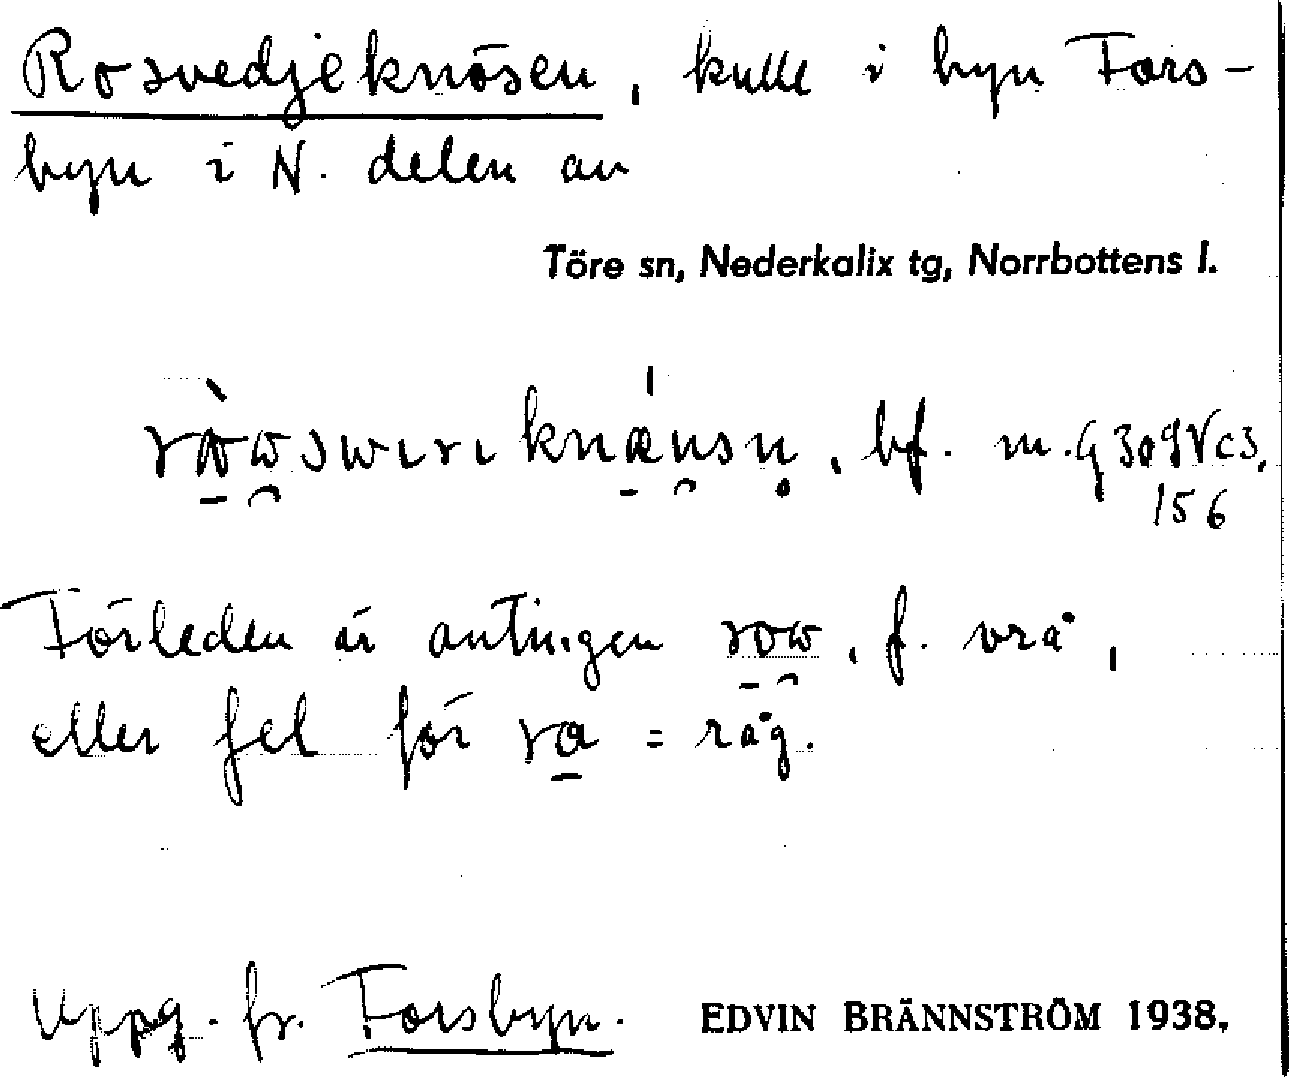 Rosvedjeknösen, kulle i byn Fors-
byn i N. delen av
Töre sn, Nederkalix tg, Norrbottens l.
bf. m.
156
Förleden är antingen row, f. vrå,
eller fel för ra = råg.
Uppg. fr. Forsbyn. EDVIN BRÄNNSTRÖM 1938.